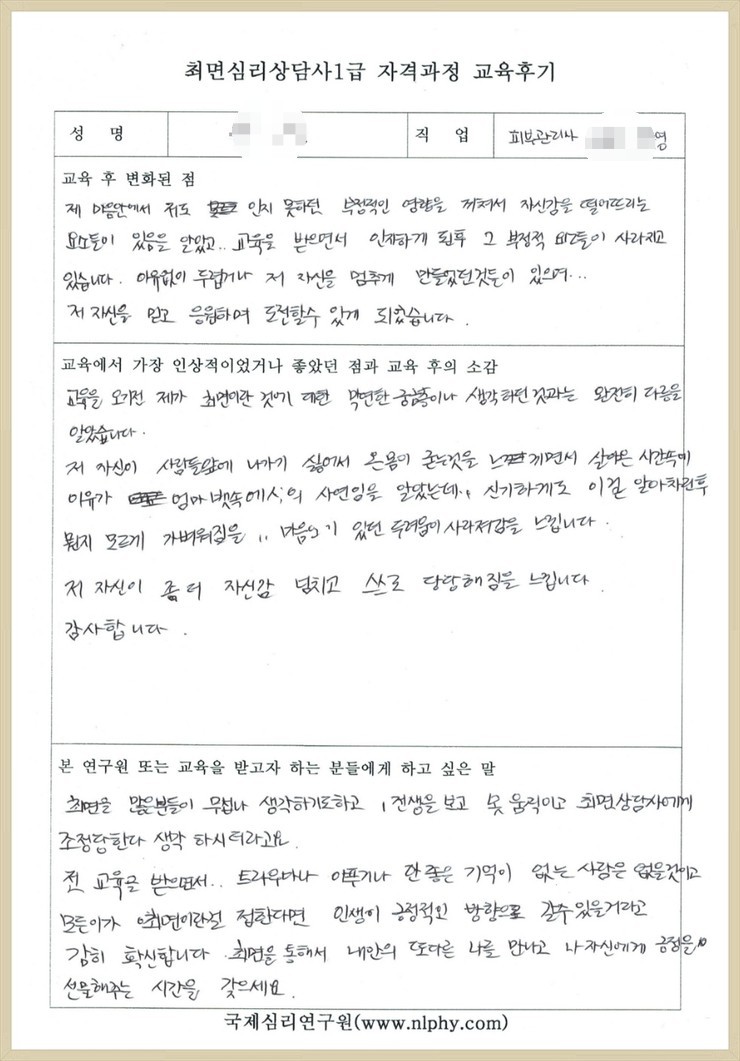 최면심리상담사1급 자격과정 교육후기
성 명
직 업 피부관리사 영
교육 후 변화된 점
제 마음안에서 저도 인지 못하던 부정적인 영향을 끼쳐서 자신감을 떨어뜨리는
요소들이 있음을 알았고.. 교육을 받으면서 인지하게 된후 그 부정적 요소들이 사라지고
있습니다. 이유없이 두렵거나 저 자신을 멈추게 만들었던것들이 있으며...
저 자신을 믿고 응원하며 도전할수 있게 되었습니다.
교육에서 가장 인상적이었거나 좋았던 점과 교육 후의 소감
교육을 오기전 제가 최면이란 것에 대한 막연한 궁금증이나 생각하던것과는 완전히 다름을
알았습니다.
저 자신이 사람들앞에 나가기 싫어서 온몸이 굳는것을 느끼면서 살아온 시간속에
이유가 엄마 뱃속에서의 사연임을 알았는데.. 신기하게도 이걸 알아차린후
뭔지 모르게 가벼워짐을 .. 마음속에 있던 두려움이 사라져감을 느낍니다.
저 자신이 좀 더 자신감 넘치고 스스로 당당해짐을 느낍니다.
감사합니다.
본 연구원 또는 교육을 받고자 하는 분들에게 하고 싶은 말
최면을 많은분들이 무섭다 생각하기도하고, 전생을 보고 못 움직이고 최면상담사에게
조정당한다 생각 하시더라고요.
전 교육을 받으면서.. 트라우마나 아푸거나 안 좋은 기억이 없는 사람은 없을것이고
모든이가 최면이란걸 접한다면 인생이 긍정적인 방향으로 갈수있을거라고
감히 확신합니다. 최면을 통해서 내안의 또다른 나를 만나고 나자신에게 긍정을
선물해주는 시간을 갖으세요.
국제심리연구원(www.nlphy.com)